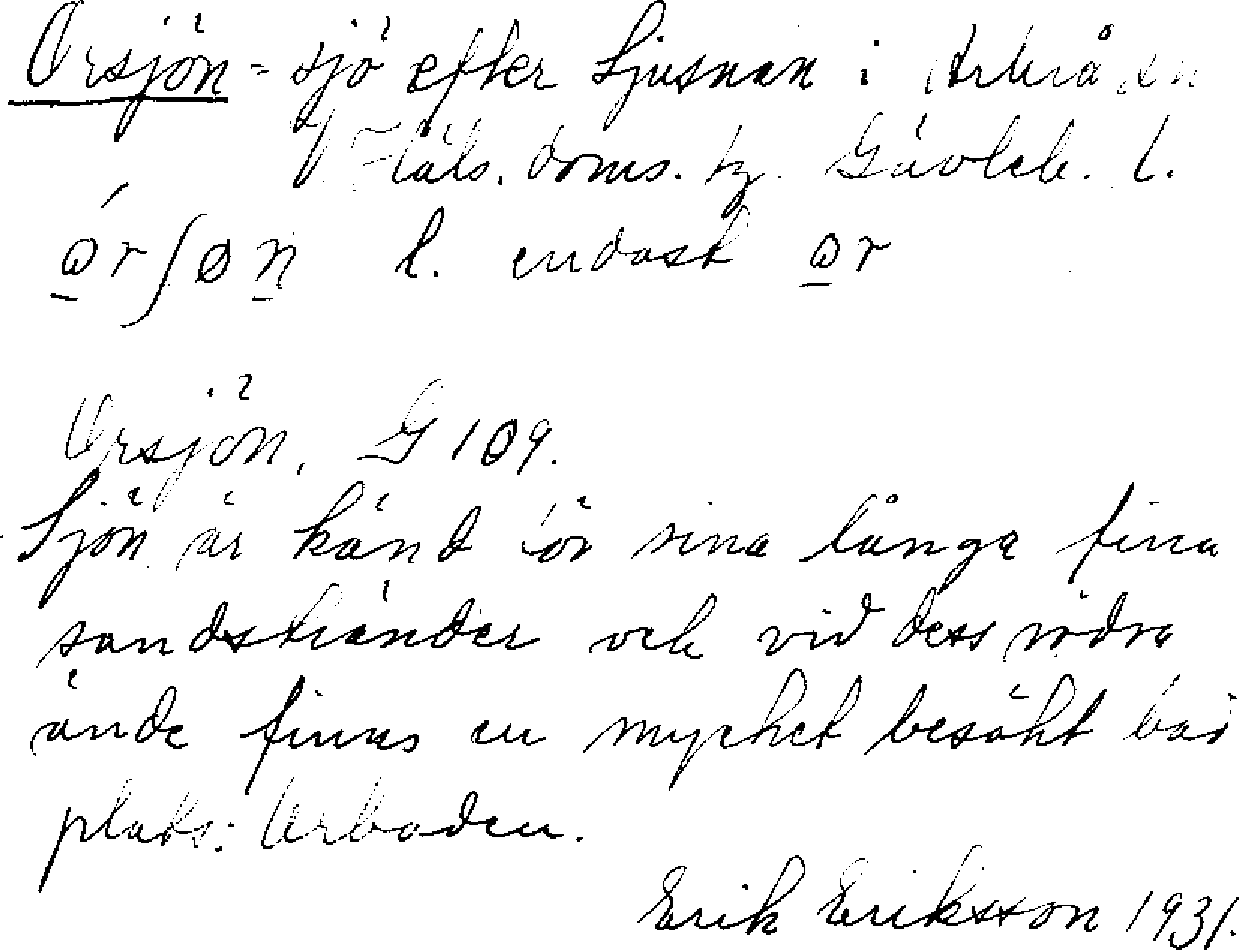 Orsjön = sjö efter Ljusnan i Arbrå sn
V Häls. doms. tg. Gävleb. l.
ǫ́rʃøn l. endast ǫr
Orsjön, G 109.
Sjön är känd för sina långa fina
sandstränder och vid dess södra
ände finns en mycket besökt bad
plats: Orbaden.
Erik Eriksson 1931.